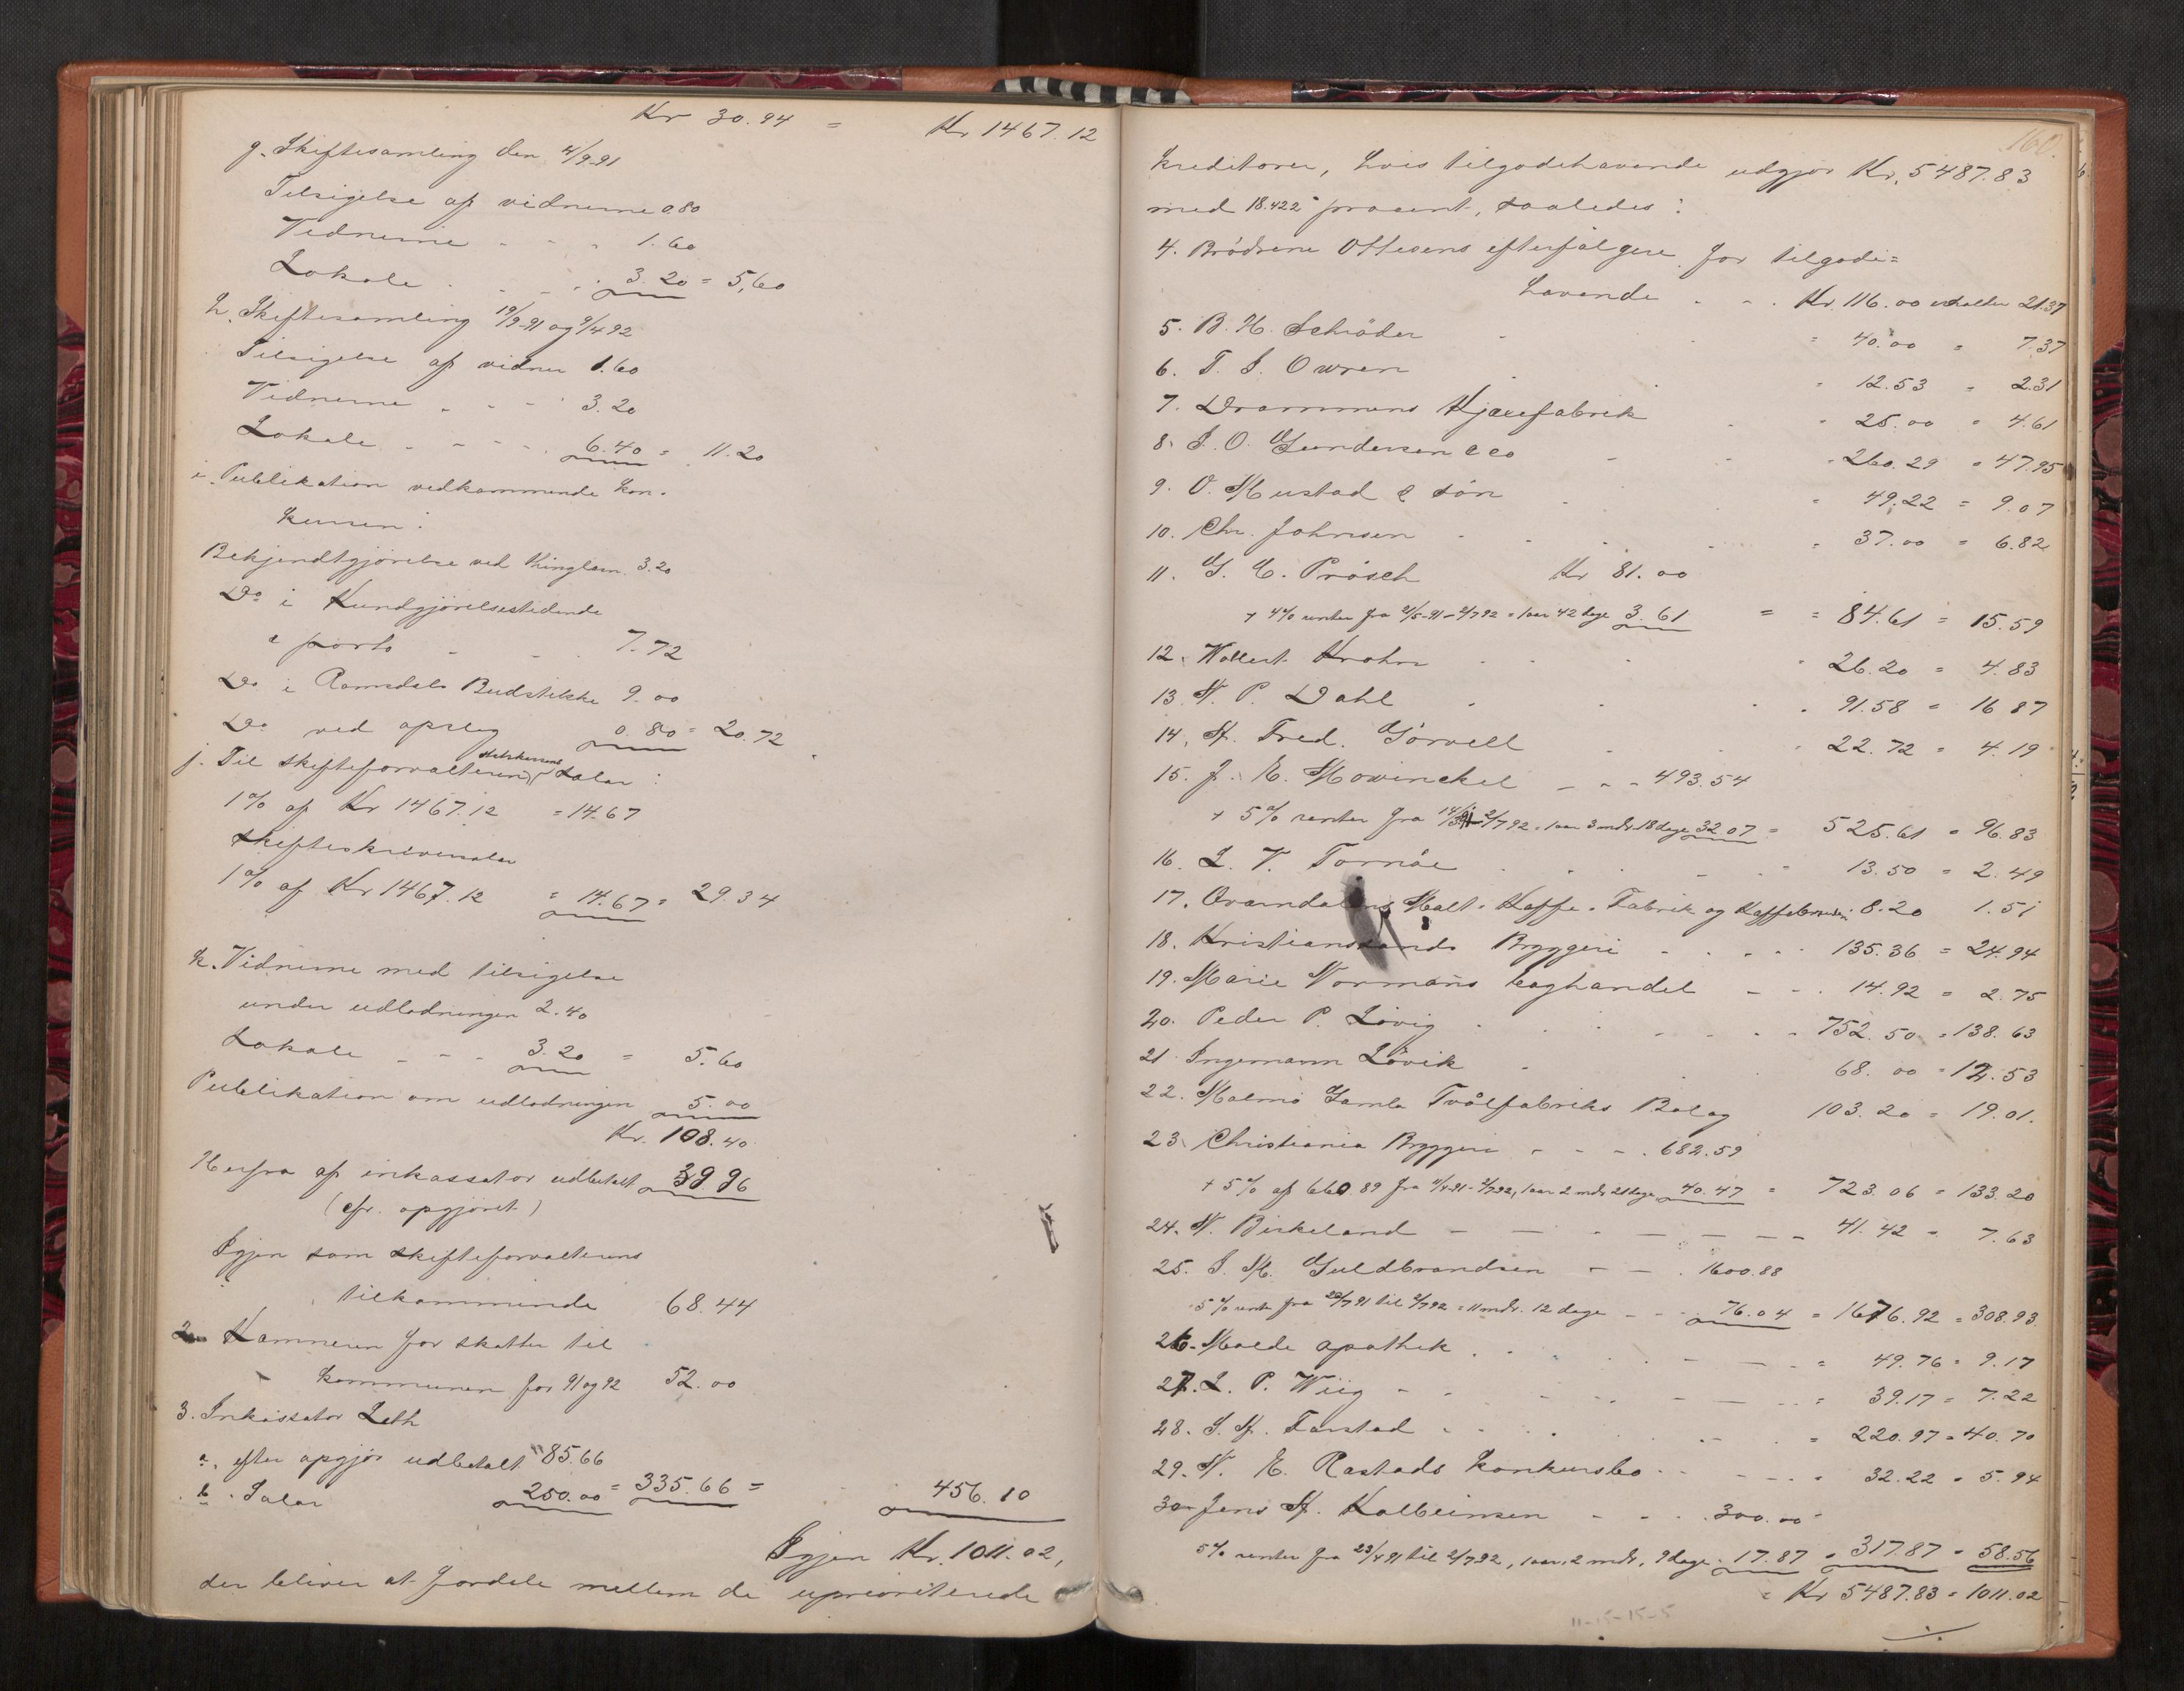 Kr 30.94 = Kr 1467.12
g. Skiftesamling den 4/9-91
Tilsigelse af vidnerne 0.80
Vidnerne - - - 1.60
Lokale . - - . 3.20 = 5,60
h. Skiftesamling 19/9-91 og 9/4 92
Tilsigelse af vidner 1.60
Vidnerne . - - 3.20
Lokale . - - - . 6.40 = 11.20
i. Publikation vedkommende kon-
kursen:
Bekjendtgjørelse ved Ringlem 3.20
Do i Kundgjørelsestidende
& porto - - 7.72
Do i Romsdals Budstikke 9.00
Do ved opslag 0.80 = 20.72
j. Til skifteforvalteren salær:
1% af Kr 1467.12 = 14.67
skifteskriversalær
1% af Kr 1467.12 = 14.67 = 29.34
k. Vidnerne med tilsigelse
under udlodningen 2.40
Lokale - - - 3.20 = 5.60
Publikation om udlodningen 5.00
Kr. 108.40
Herfra af inkassator udbetalt 39.96
(cfr. opgjøret)
Igjen som skifteforvalterens
tilkommende 68.44
2. Kæmneren for skatter til
kommunen for 91 og 92 52.00
3. Inkassator Leth
a. efter opgjør udbetalt 85.66
b. Salær 250.00 = 335.66 = 456.10
Igjen Kr. 1011.02,
der bliver at fordele mellem de uprioriterede
160.
kreditorer, hvis tilgodehavende udgjør Kr. 5487.83
med 18.422 procent, saaledes:
4. Brødrene Ottesens efterfølgere for tilgode=
havende . - . Kr. 116.00 erholder 21.37
5. B. H. Schrøder - = 40.00 = 7.37
6. T. S. Owren = 12.53 = 2.31
7. Drammens Kjæxefabrik - 25.00 = 4.61
8. S. O. Gundersen & co - - 260.29 = 47.95
9. O. Mustad & søn = 49.22 = 9.07
10. Chr. Johnsen - - = 37.00 = 6.82
11. G. C. Prösch Kr 81.00
+ 4% renter fra 21/5-91 - 2/7 92 = 1 aar 42 dage 3.61 = = 84.61 = 15.59
12. Wollert Krohn - 26.20 = 4.83
13. N. P. Dahl . 91.58 = 16 87
14. M. Fred. Gørvell 22.72 = 4.19
15. J. E. Mowinckel - - - 493.54
+ 5% renter fra 14/3 91 - 2/7 92 = 1 aar 3 mdr. 18 dage 32 07 = 525.61 = 96.83
16. L. V. Tornøe 13.50 = 2.49
17. Malt-Kaffe-Fabrik og 8.20 1.51
18. Kristianssands Bryggeri - . . . . 135.36 = 24.94
19. Marie Normans boghandel - - . 14.92 = 2.75
20. Peder P. Løvig . . . . - - - 752.50 = 138.63
21 Ingemann Løvik 68.00 = 12.53
22. Malmö Gamla Tvålfabriks Bolag 103.20 = 19.01.
23. Christiania Bryggeri - - - . 682.59
+ 5% af 660.89 fra 11/4 91 - 2/7 92, 1 aar 2 mdr 21 dage 40.47 = 723.06 = 133.20
24. N. Birkeland - - - - - - - 41.42 = 7.63
25. S. M. Guldbrandsen - - . 1600.88
5% rente fra 20/7 91 til 2/7 92 = 11 mdr. 12 dage - - 76.04 = 1676.92 = 308.93
26. Molde apothek . . . . - - - = 49.76 = 9.17
27. L. P. Wiig - - - - - = 39.17 = 7.22
28. S. M. Farstad - - - = 220.97 = 40.70
29. N. E. Rastads konkursbo . . - - - = 32.22 = 5.94
30 Jens M. Kolbeinsen - - - . 300.00
5% renter fra 23/4 91 til 2/7 92, 1 aar, 2 mdr, 9 dage . 17.87 = 317.87 = 58.56
= Kr 5487.83 = 1011.02